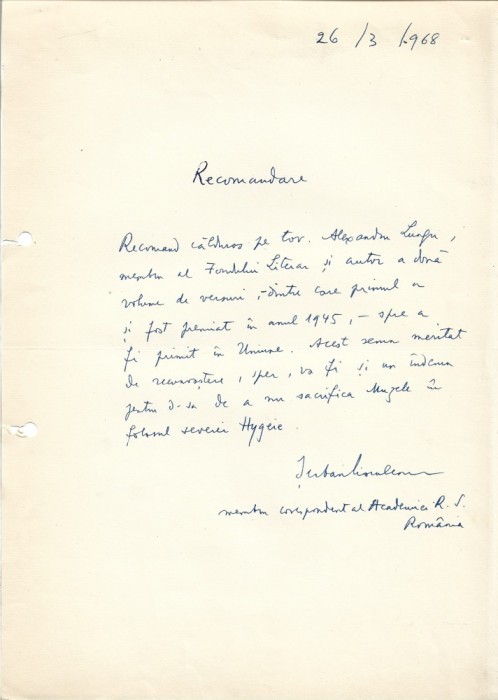 26 /3 /.968
Recomandare
Recomand călduros pe tov. Alexandru Lungu,
membru al Fondului Literar și autor a două
volume de versuri, – dintre care primul a
și fost premiat în anul 1945, – spre a
fi primit în Uniune. Acest semn meritat
de recunoaștere, sper, va fi și un îndemn
pentru d-sa de a nu sacrifica Muzele în
folosul severei Hygeie.
Șerban Cioculescu
membru corespondent al Academiei R. S.
România